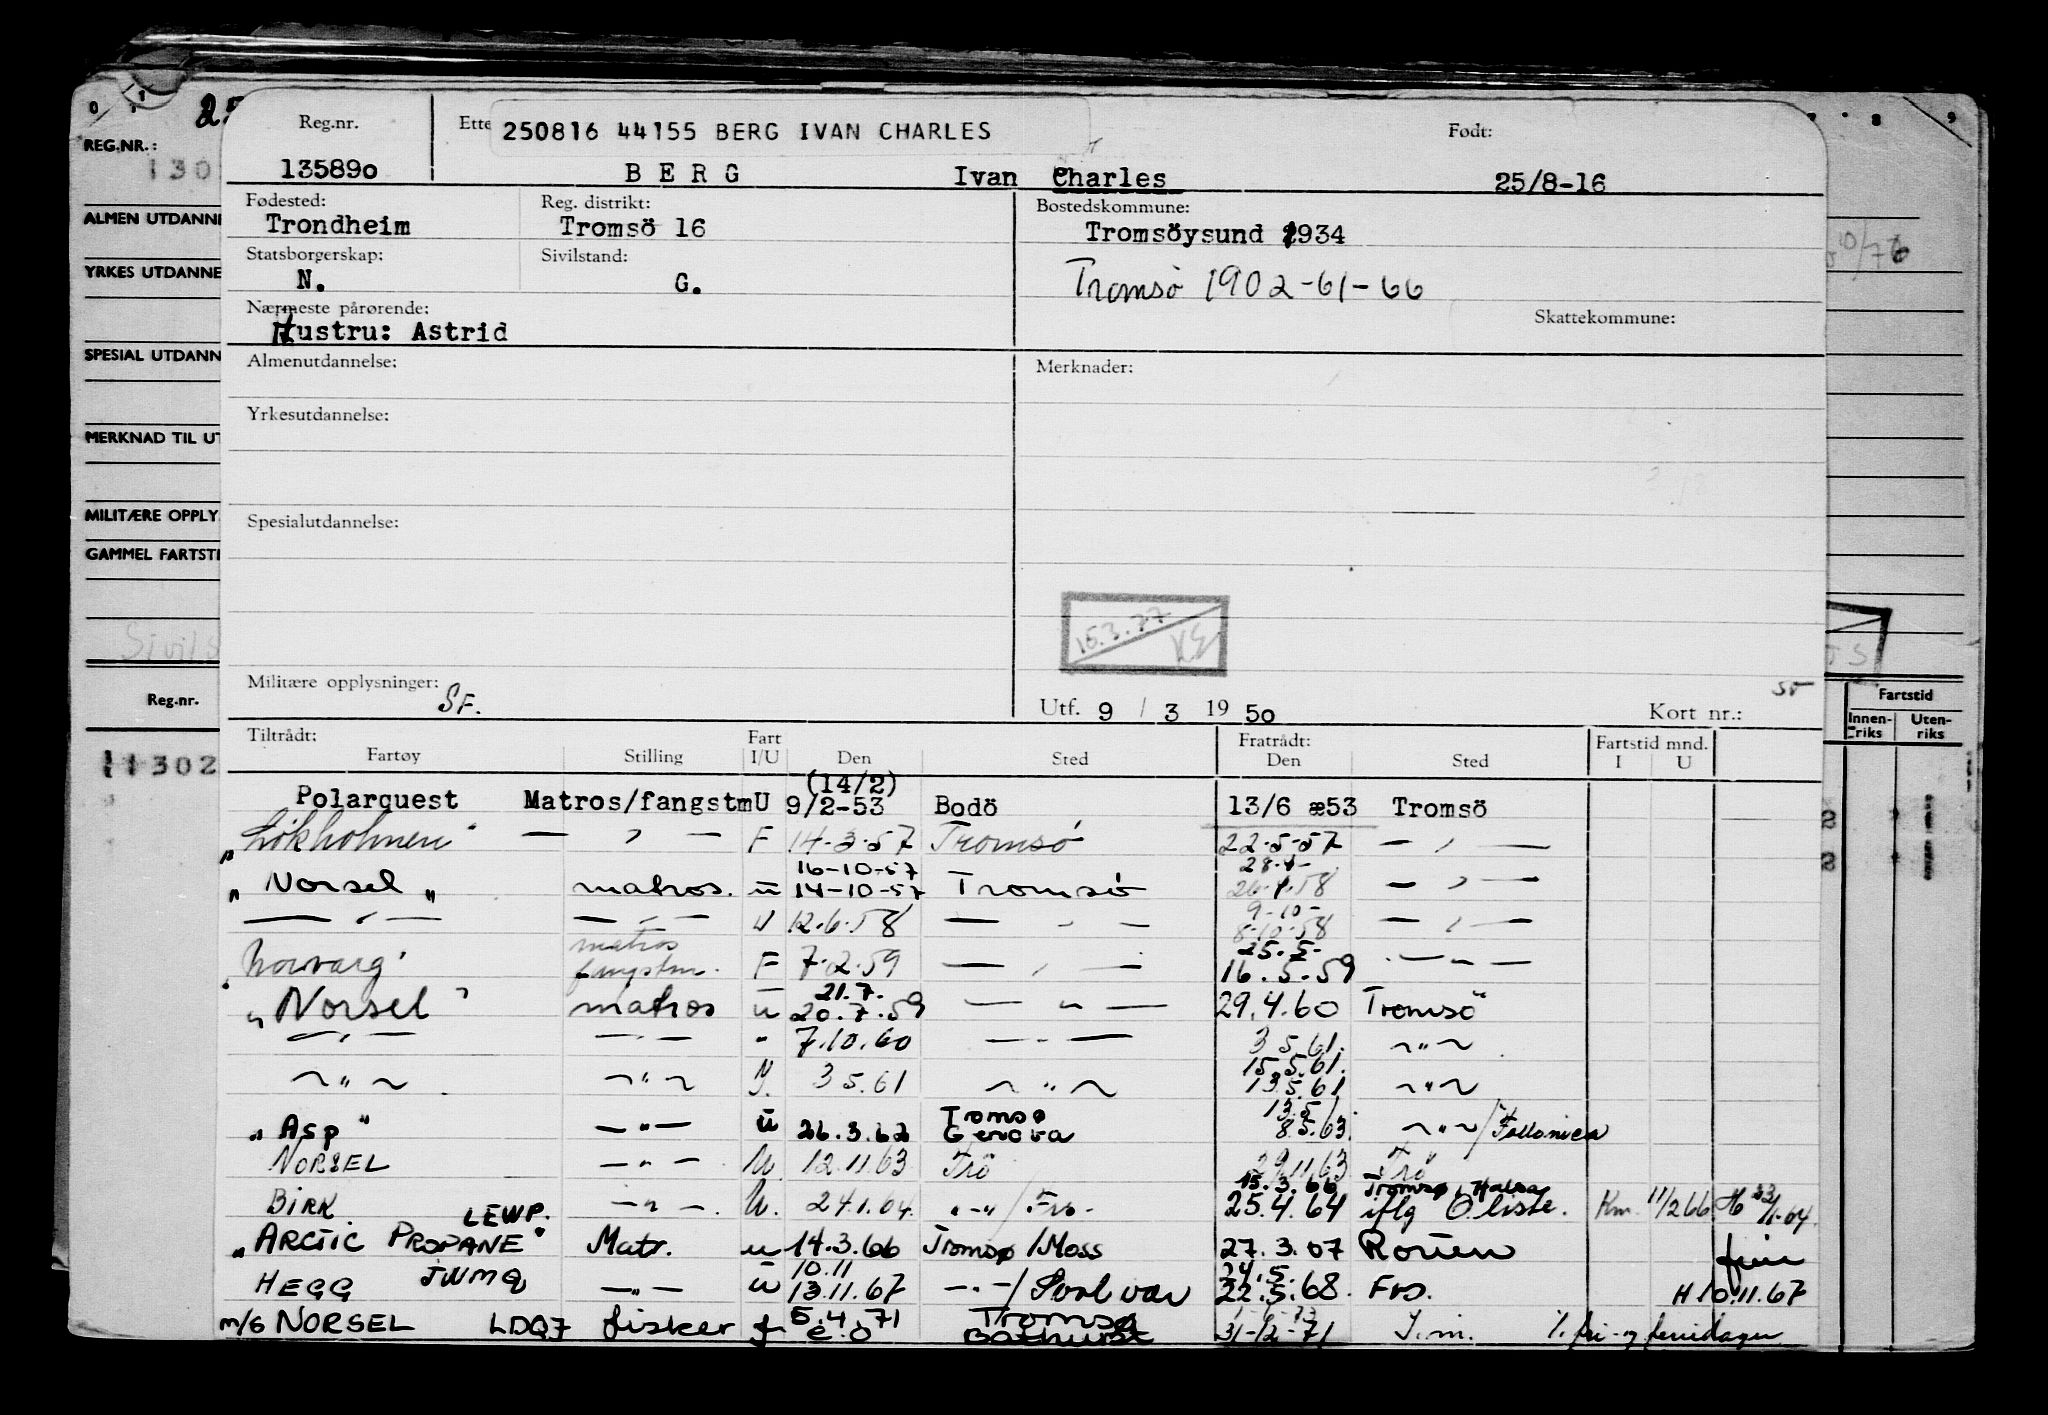 REG.NR.:
ALMEN UTDANNE
YRKES UTDANNE
SPESIAL UTDANN
MERKNAD TIL UT
MILITÆRE OPPLY
GAMMEL FARTSTI
Reg.nr.
11302
Reg.nr. Ette 250816 44155 BERG IVAN CHARLES Født:
135890 BERG Ivan Charles 25/8-16
Fødested: Reg. distrikt: Bostedskommune:
Trondheim Tromsö 16 Tromsöysund 1934
Statsborgerskap: Sivilstand:
N. G. Tromsø 1902-61-66
Nærmeste pårørende: Skattekommune:
Hustru: Astrid
Almenutdannelse: Merknader:
Yrkesutdannelse:
Spesialutdannelse:
15.3.77
KE
Militære opplysninger: SF. Utf. 9 / 3 19 50 Kort nr.:
Tiltrådt: Fart Fratrådt: Fartstid mnd.
Fartøy Stilling I/U Den Sted Den Sted I U
(14/2)
Polarquest Matros/fangstmU 9/2-53 Bodö 13/6 53 Tromsö
"Løkholmen" — " — F 14-3-57 Tromsø 22-5-57 — " —
16-10-57 28-1-
"Norsel" matros. u 14-10-57 Tromsø 26-1-58 — " —
9-10-
— " — — " — U 12.6.58 — " — 8-10-58 — " —
matros 25.5-
"Norvarg" fangstm. F 7.2.59 — " — 16.5.59 — " —
21.7.
"Norsel" matros u 20.7.59 — " — 29.4.60 Tromsö
— " — — " — " 7.10.60 — " — 3 5.61. — " —
15.5.61.
— " — — " — 3 5.61 — " — 13.5.61 — " —
Tromsø 13.5
"Asp" — " — u 26.3.62 Genova 8.5.63. — " — / Follonica
NORSEL — " — U 12.11.63 Trö 29.11.63 Trö
15.3.66 Tromsø
BIRK — " — U. 24.1.64. — " — / Frs. 25.4.64 iflg O.liste. Km. 11/2 66 H 23/1-64.
LEWP.
"ARCTIC PROPANE" Matr. u 14.3.66 Tromsø / Moss 27.3.67 Rouen
10.11 24.5.
HEGG JWMQ — " — u 13.11.67 — " — / Svolvær 22.5.68. Frs. H 10.11.67
5.4.71 Tromsø
m/s NORSEL LDQ7 fisker f e.o Bathurst 31-12-71 I.m. fri- og feriedager
Fartstid
Innen-
riks
Uten-
riks